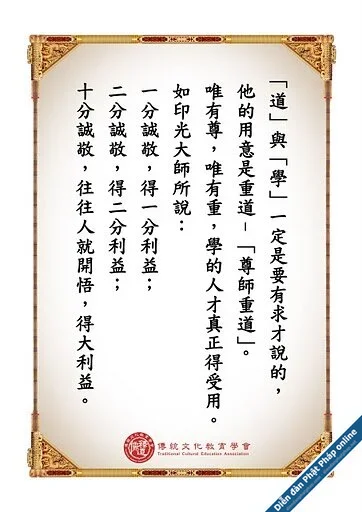 「道」與「學」一定是要有求才說的，
他的用意是重道－「尊師重道」。
唯有尊，唯有重，學的人才真正得受用。
如印光大師所說：
一分誠敬，得一分利益；
二分誠敬，得二分利益；
十分誠敬，往往人就開悟，得大利益。
傳統文化教育學會
Traditional Cultural Education Association
Diễn đàn Phật Pháp online